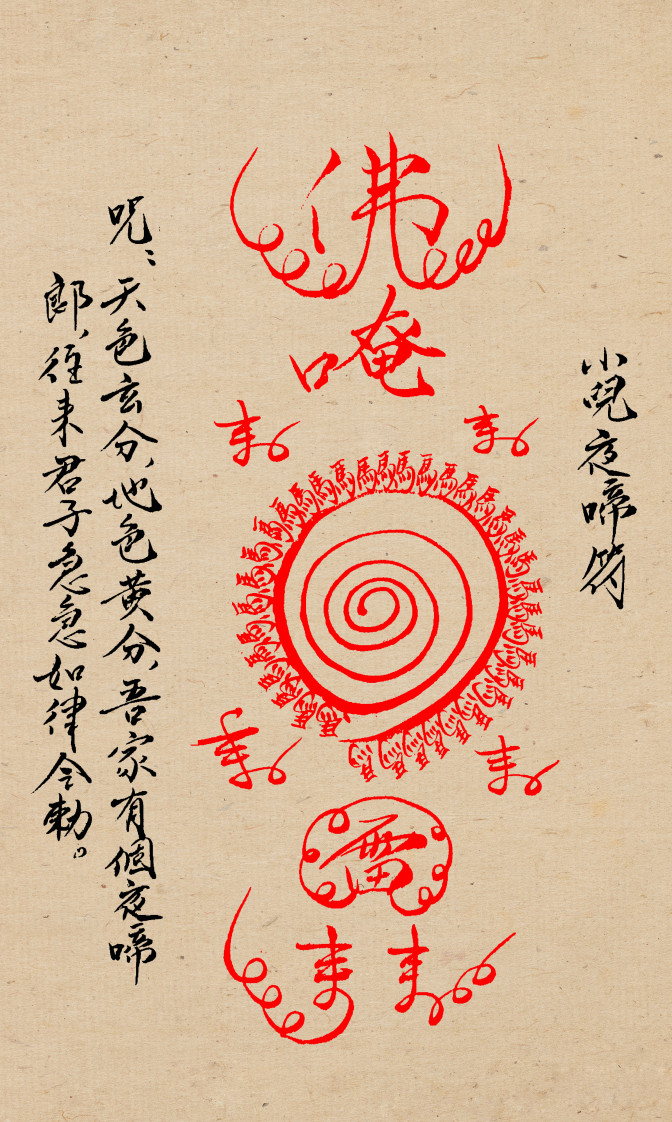 小兒夜啼符
佛
唵
馬馬馬馬馬馬馬馬馬馬馬馬馬馬馬馬馬馬馬馬馬馬馬馬馬馬馬馬馬馬馬馬馬馬馬馬馬馬馬馬
雷
咒：天色玄分、地色黄分、吾家有個夜啼
郎、往来君子急急如律令勅。